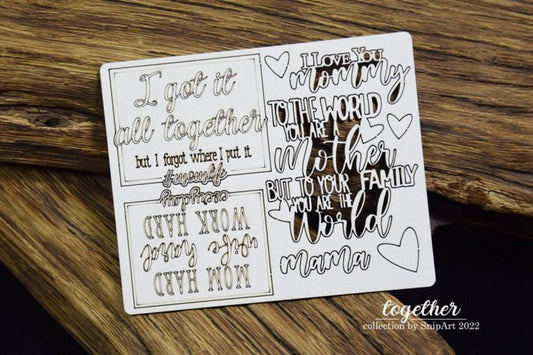 I got it
all together
but I forgot where I put it
#momlife
MOM HARD
WORK HARD
I LOVE YOU
mommy
TO THE WORLD
YOU ARE A
Mother
BUT TO YOUR FAMILY
YOU ARE THE
World
mama
together
collection by SnipArt 2022